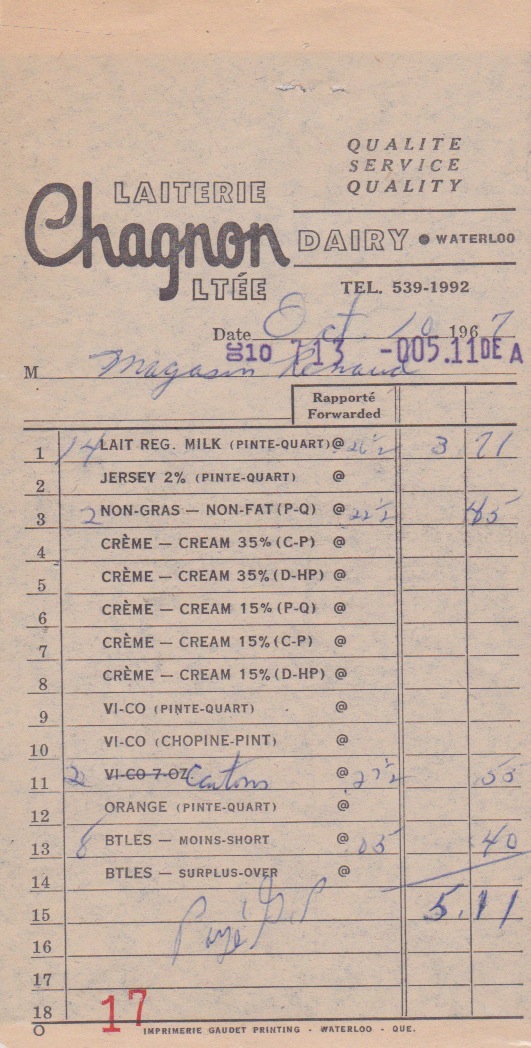 QUALITE
SERVICE
QUALITY
LAITERIE
Chagnon DAIRY ● WATERLOO
LTÉE
TEL. 539-1992
Date Oct. 10 1967
10 713 -005.11DE A
M Magasin Renaud
Rapporté
Forwarded
1 14 LAIT REG. MILK (PINTE-QUART) @ 26½ 3 71
2 JERSEY 2% (PINTE-QUART) @
3 2 NON-GRAS — NON-FAT (P-Q) @ 22½ 45
4 CRÈME — CREAM 35% (C-P) @
5 CRÈME — CREAM 35% (D-HP) @
6 CRÈME — CREAM 15% (P-Q) @
7 CRÈME — CREAM 15% (C-P) @
8 CRÈME — CREAM 15% (D-HP) @
9 VI-CO (PINTE-QUART) @
10 VI-CO (CHOPINE-PINT) @
11 2 VI-CO 7-OZ. Cartons @ 27½ 55
12 ORANGE (PINTE-QUART) @
13 8 BTLES — MOINS-SHORT @ 05 40
14 BTLES — SURPLUS-OVER @
15 5.11
16 Payé
17
18 17
IMPRIMERIE GAUDET PRINTING - WATERLOO - QUE.